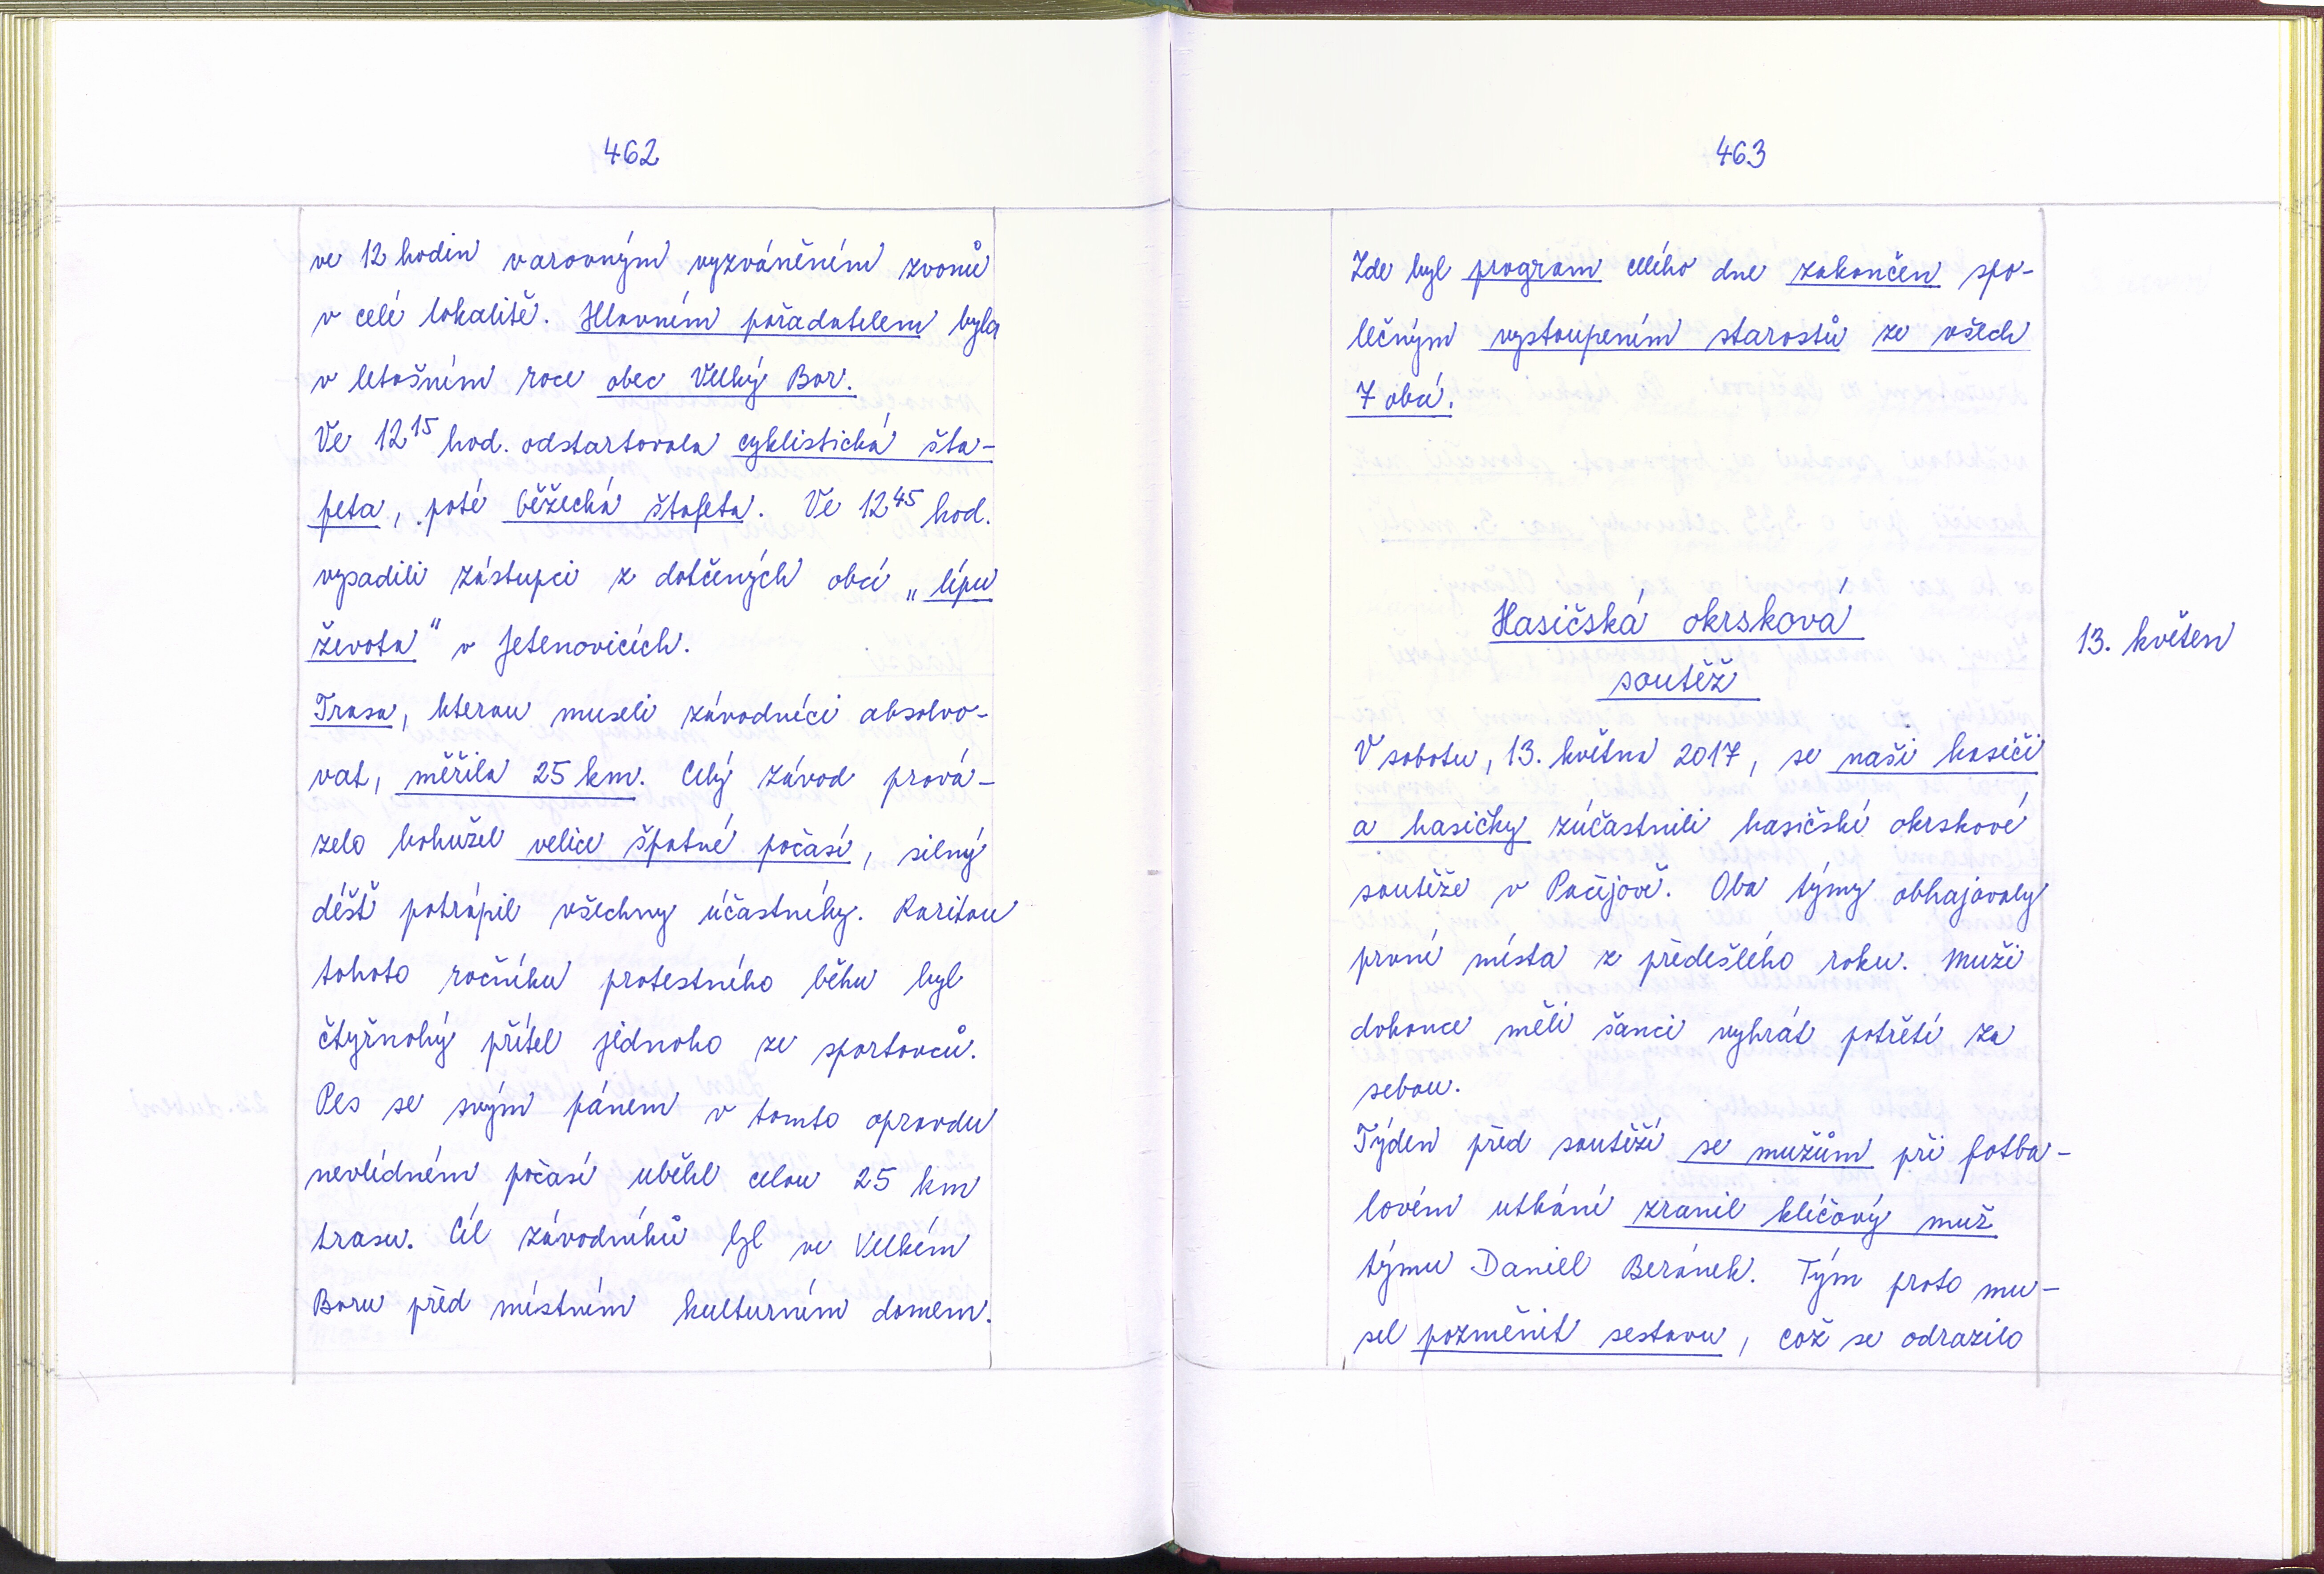 462
ve 12 hodin varovným vyzváněním zvonů
v celé lokalitě. Hlavním pořadatelem byla
v letošním roce obec Velký Bor.
Ve 12 15 hod. odstartovala cyklistická šta-
feta, poté běžecká štafeta. Ve 12 45 hod.
vysadili zástupci z dotčených obcí „lípu
života" v Jetenovicích.
Trasa, kterou museli závodníci absolvo-
vat, měřila 25 km. Celý závod prová-
zelo bohužel velice špatné počasí, silný
déšť potrápil všechny účastníky. Raritou
tohoto ročníku protestního běhu byl
čtyřnohý přítel jednoho ze sportovců.
Pes se svým pánem v tomto opravdu
nevlídném počasí uběhl celou 25 km
trasu. Cíl závodníků byl ve Velkém
Boru před místním kulturním domem.
463
Zde byl program celého dne zakončen spo-
lečným vystoupením starostů ze všech
7 obcí.
Hasičská okrsková
soutěž
13. květen
V sobotu, 13. května 2017, se naši hasiči
a hasičky zúčastnili hasičské okrskové
soutěže v Pačejově. Oba týmy obhajovaly
první místa z předešlého roku. Muži
dokonce měli šanci vyhrát potřetí za
sebou.
Týden před soutěží se mužům při fotba-
lovém utkání zranil klíčový muž
týmu Daniel Beránek. Tým proto mu-
sel pozměnit sestavu, což se odrazilo